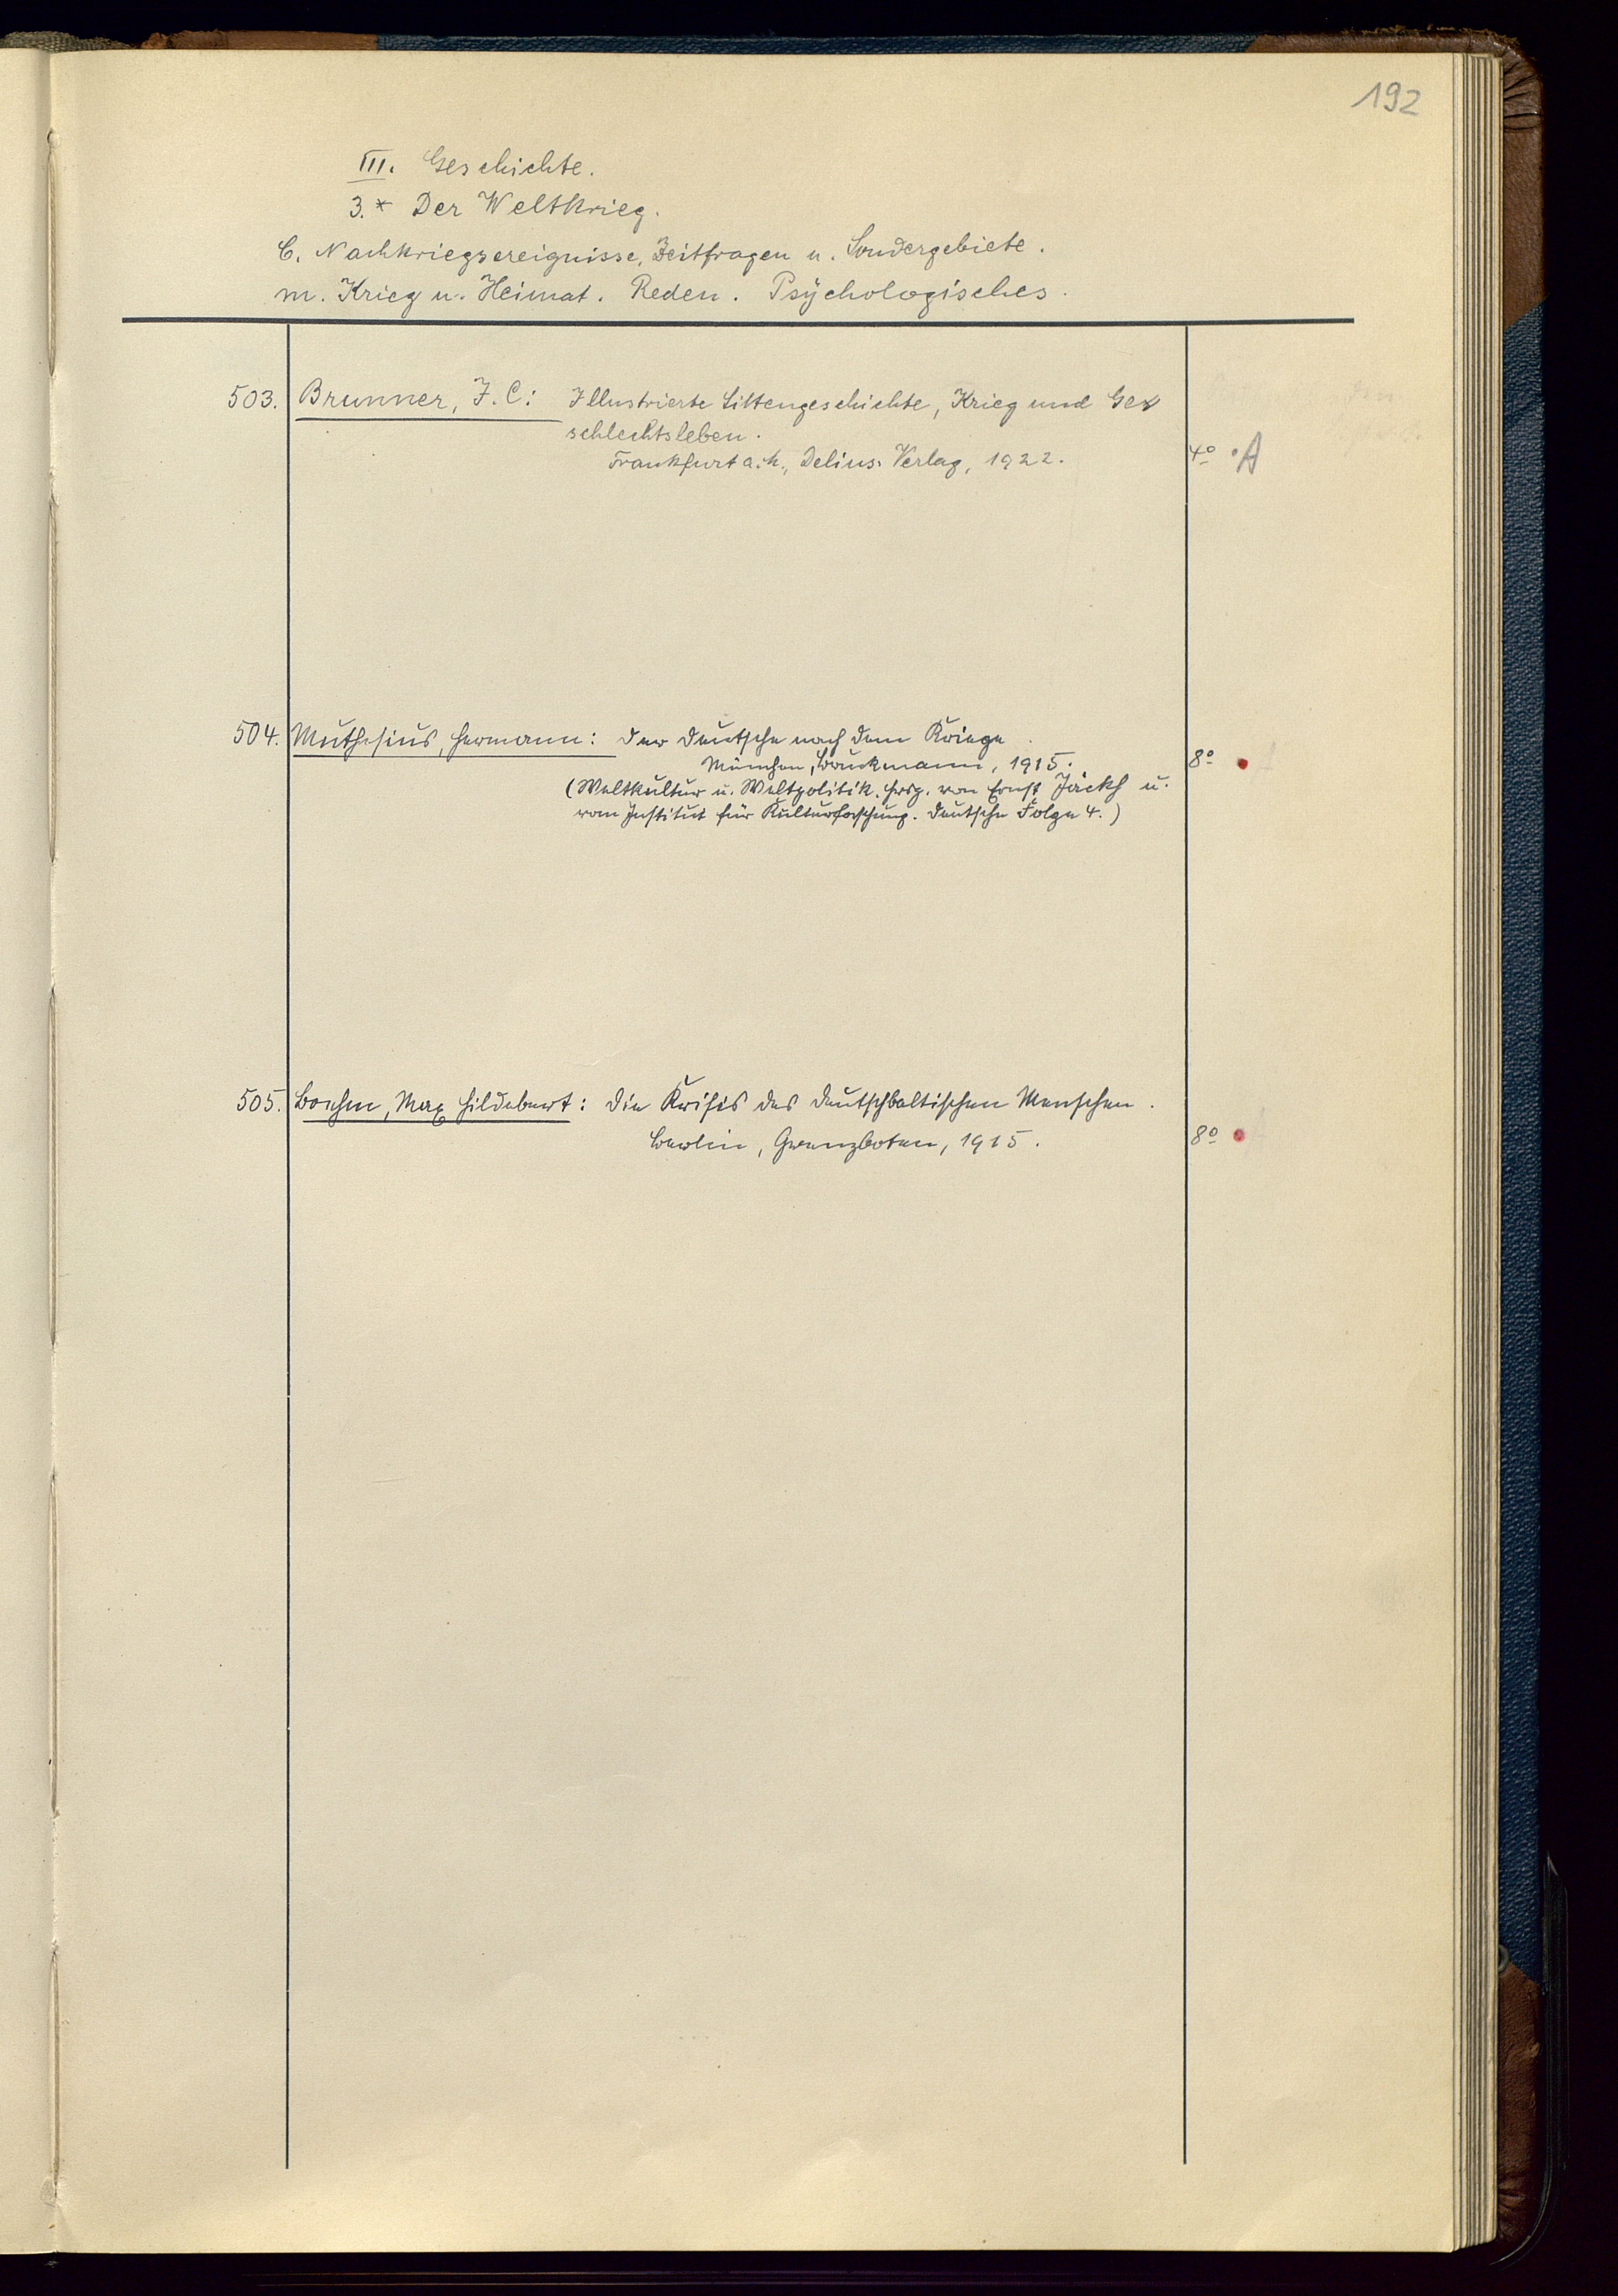 192
III. Geschichte.
3.* Der Weltkrieg.
C. Nachkriegsereignisse, Zeitfragen u. Sondergebiete.
m. Krieg u. Heimat. Reden. Psychologisches.
503. Brunner, F. C: Illustrierte Sittengeschichte, Krieg und Ge=
schlechtsleben.
Frankfurt a. M., Delius-Verlag, 1922. 4° A
504. Muthesius, Hermann: Der Deutsche nach dem Kriege.
München, Bruckmann, 1915. 8°
(Weltkultur u. Weltpolitik. Hrsg. von Ernst Jäckh u.
vom Institut für Kulturforschung. Deutsche Folge 4.)
505. Boehm, Max Hildebert: Die Krisis des deutschbaltischen Menschen.
Berlin, Grenzboten, 1915. 8°